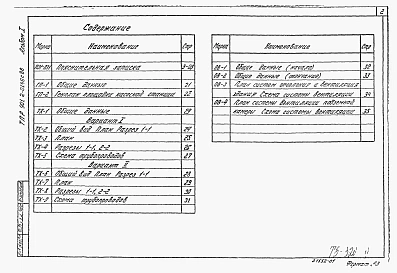 2
Содержание
Альбом I
Марка Наименование Стр
ПЗ-ВП Пояснительная записка 3-18
ГП-1 Общие данные 21
ГП-2 Генплан площадки насосной станции 22
ТХ-1 Общие данные 23
Вариант I
ТХ-2 Общий вид План Разрез 1-1 24
ТХ-3 План 25
ТХ-4 Разрезы 1-1, 2-2 26
ТХ-5 Схема трубопроводов 27
Вариант II
ТХ-6 Общий вид План Разрез 1-1 28
ТХ-7 План 29
ТХ-8 Разрезы 1-1, 2-2 30
ТХ-9 Схема трубопроводов 31
Марка Наименование Стр
ОВ-1 Общие данные (начало) 32
ОВ-2 Общие данные (окончание) 33
ОВ-3 План систем отопления и вентиляции
здания Схема системы вентиляции 34
ОВ-4 План системы вентиляции подземной
камеры Схема системы вентиляции 35
Формат А3